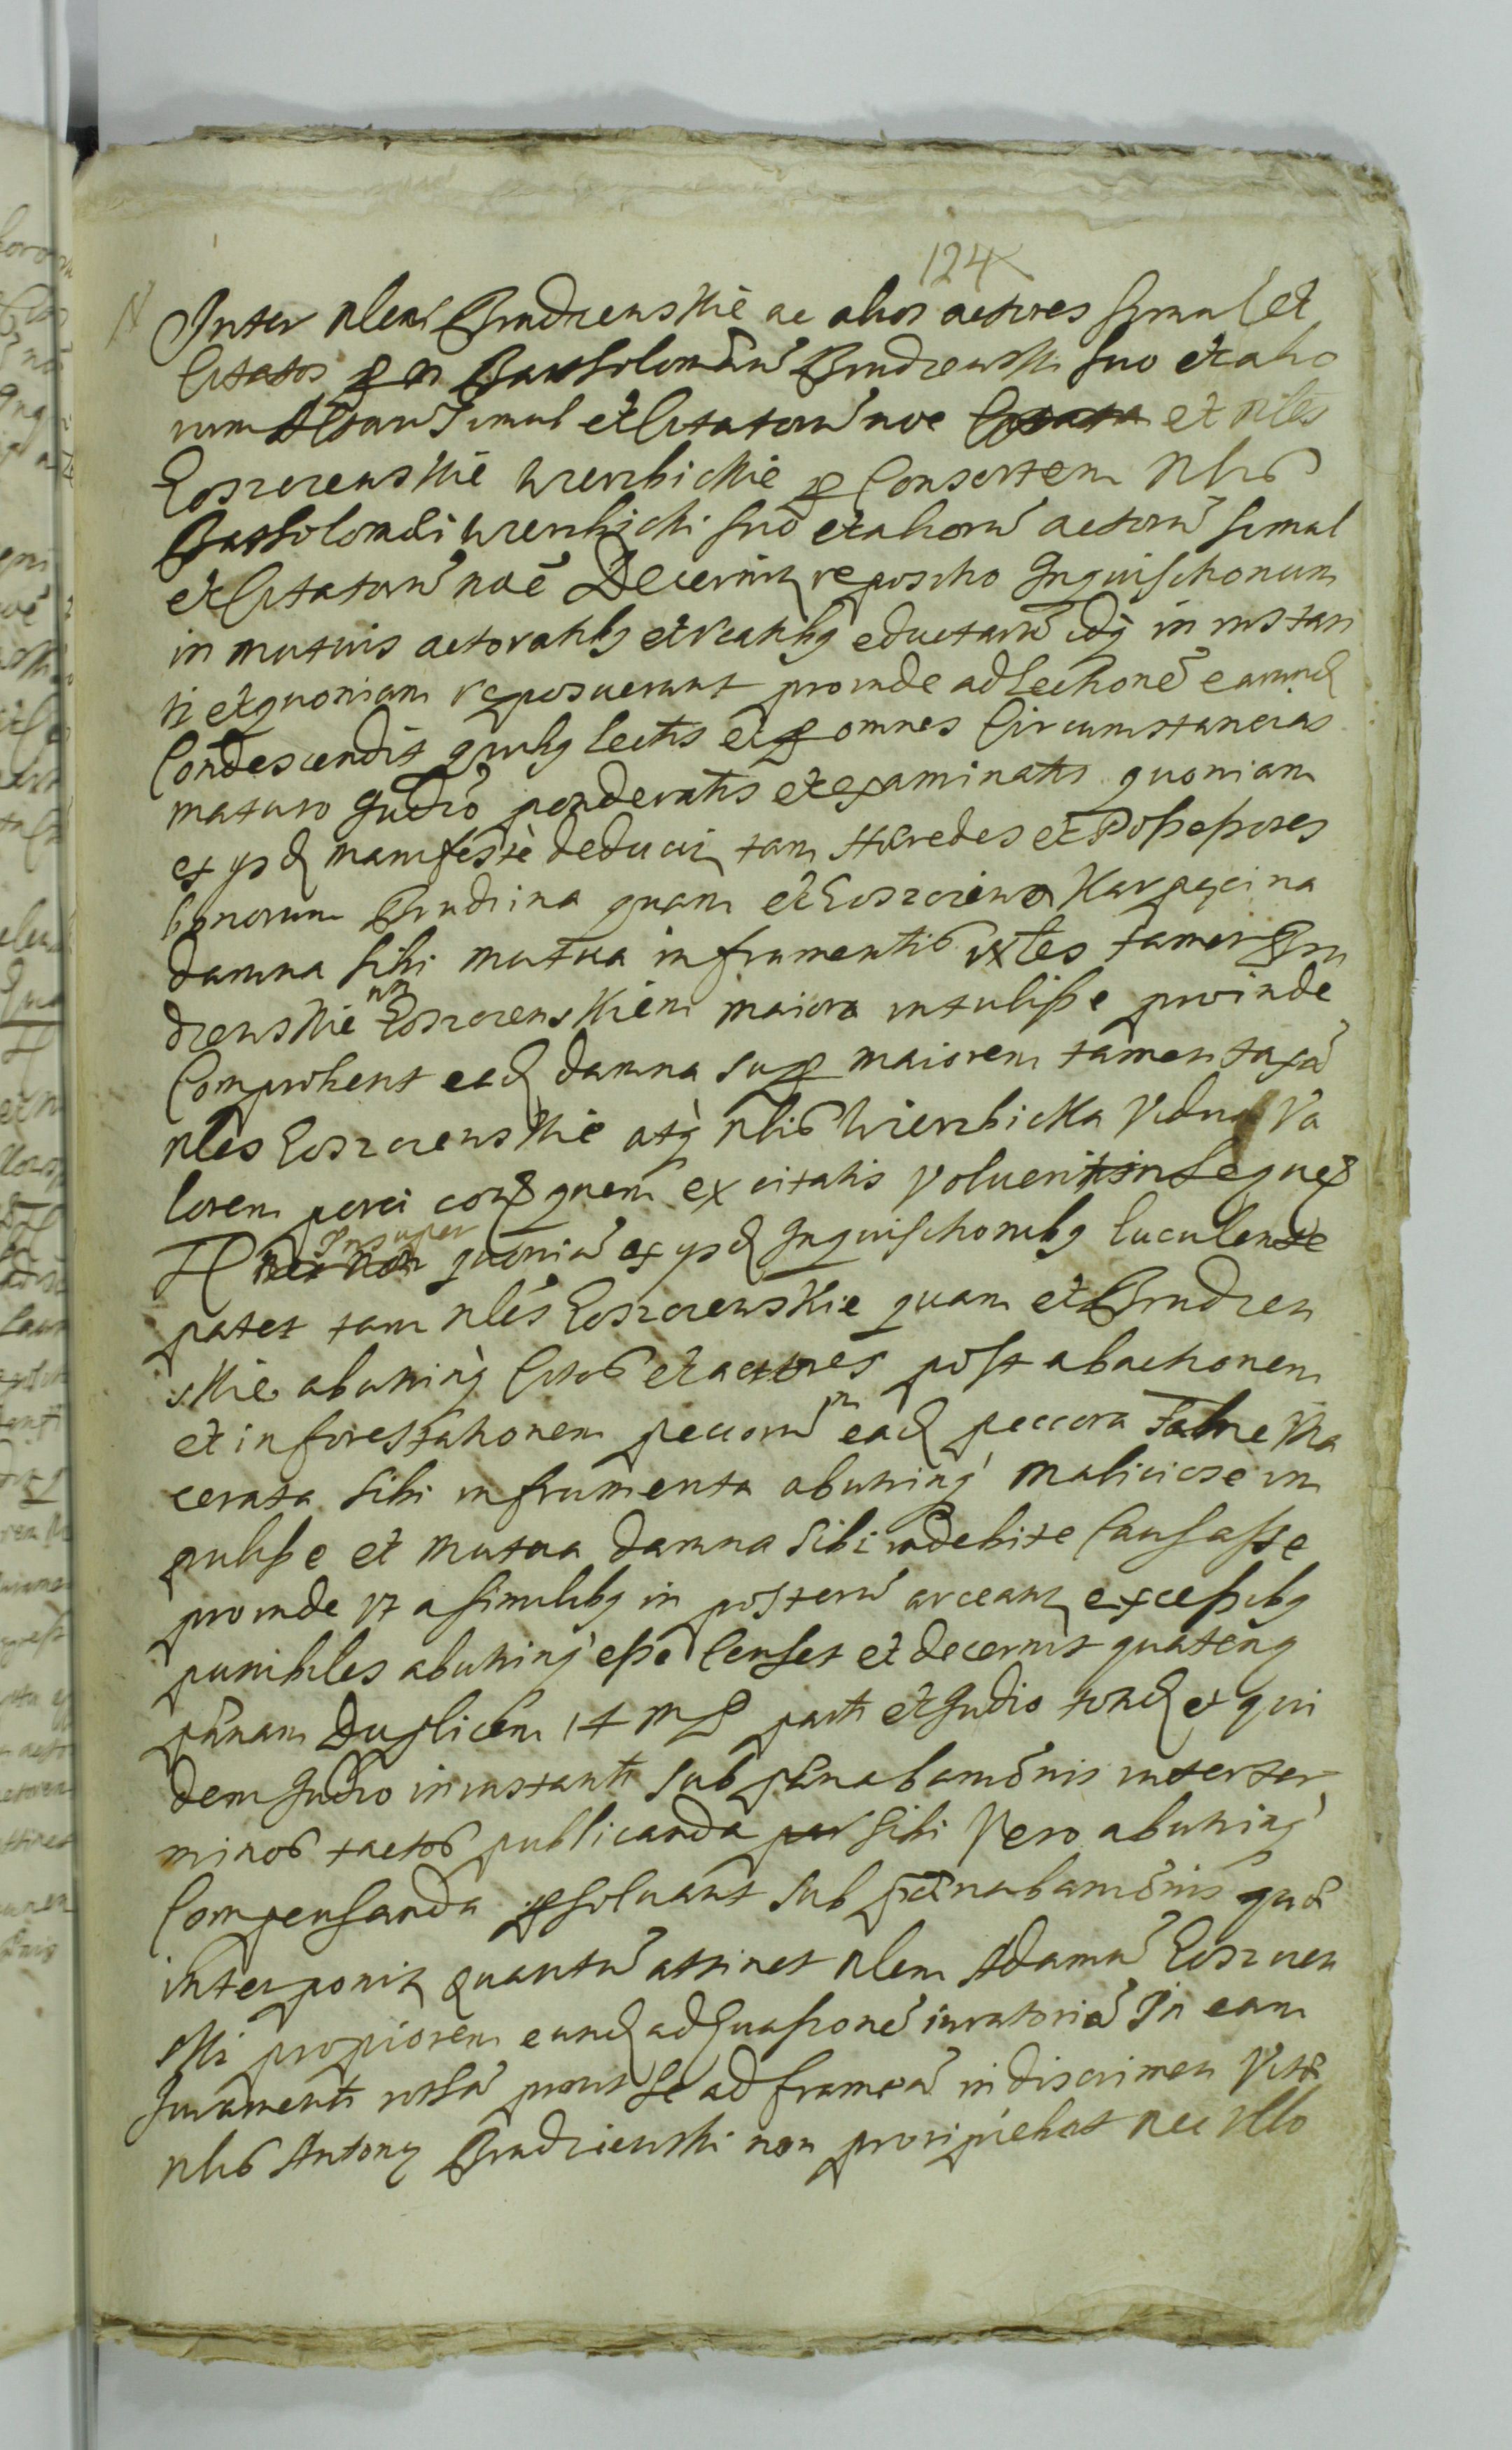 124
N Inter Nlem Brudzewskie ac alios actores simul et
Citatos per n Bartholomæu Brudzewski suo et alio
rum Actorū Simul et Citatorū noe et Nles
Loszczewskie Wierzbickie p Consortem Nlis
Bartholomæi Wierzbicki suo et aliorū actorū simul
et Citatorū noē Decernitz repositio Inquisitionum
in mutuis actoratibꝫ et reatibꝫ eductarū idqꝫ in instan
ti et quoniam reposuerunt proinde ad Lectionē earund
Condescendit quibꝫ lectis et p omnes Circumstancias
maturo Iudīo ponderatis et examinatis quoniam
ex ysd manifestè deducitz tam Hæredes et Possessores
bonorum Brudzina quam et Loszczewo Karpęcina
damna sibi mutua in frumentis Nles tamen Bru
dzewskie nm Loszczewskiem maiora intulisse proinde
Comprobent ead damna sup maiorem tamen taxā
Nles Loszczewskie atqꝫ Nlis Wierzbicka Vidua Va
lorem porci cor quem ex citatis Voluerit
Insuper quoniā ex ysd Inquisitionibꝫ luculente
patet tam Nles Loszczewskie quam et Brudzew
skie ab utrinqꝫ Citos et actores post abactionem
et inforestationem peccorū in ead peccora Fame Ma
cerata sibi in frumenta ab utrinqꝫ maliciose im
pulisse et mutua damna sibi indebite Causasse
proinde vt a similibꝫ in posterū arceantz excessibꝫ
punibiles ab utrinqꝫ esse Censet et decernit quatenꝫ
pænam Duplicem 14 M parti et Iudīo tond et qui
dem Iudīo in instanti sub pæna bamōnis inter ter
minos tactos publicanda sibi Vero ab utrinqꝫ
Compensanda psoluant sub pæna bamōnis quā
interponitz Quantū attinet Nlem Adamū Loszczew
ski propiorem eund ad Euasionē iuratoriā In eam
Iuramenti rottā prout Se ad frameā in discrimen Vitæ
Nlis Antony Brudziewski non proripiebat nec Vllo